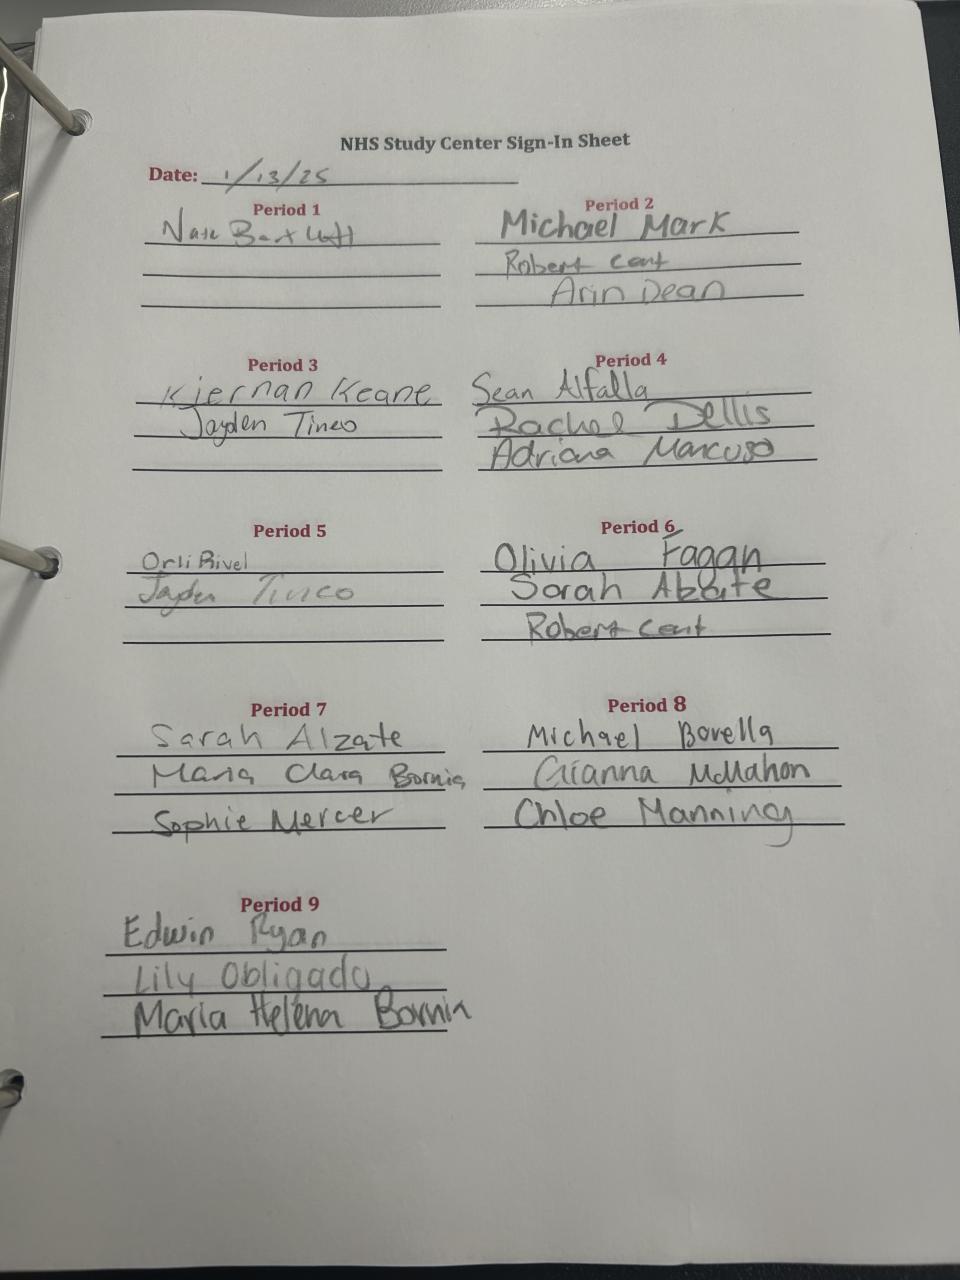 NHS Study Center Sign-In Sheet
Date: 1/13/25
Period 1
Nate Bartlett
Period 2
Michael Mark
Robert Cent
Arin Dean
Period 3
Kiernan Keane
Jayden Tineo
Period 4
Sean Alfalla
Rachel Dellis
Adriana Marcuso
Period 5
Orli Rivel
Jayden Tineo
Period 6
Olivia Fagan
Sarah Alzate
Robert Cent
Period 7
Sarah Alzate
Maria Clara Bornia
Sophie Mercer
Period 8
Michael Bovella
Gianna McMahon
Chloe Manning
Period 9
Edwin Ryan
Lily Obligado
Maria Helena Bornia